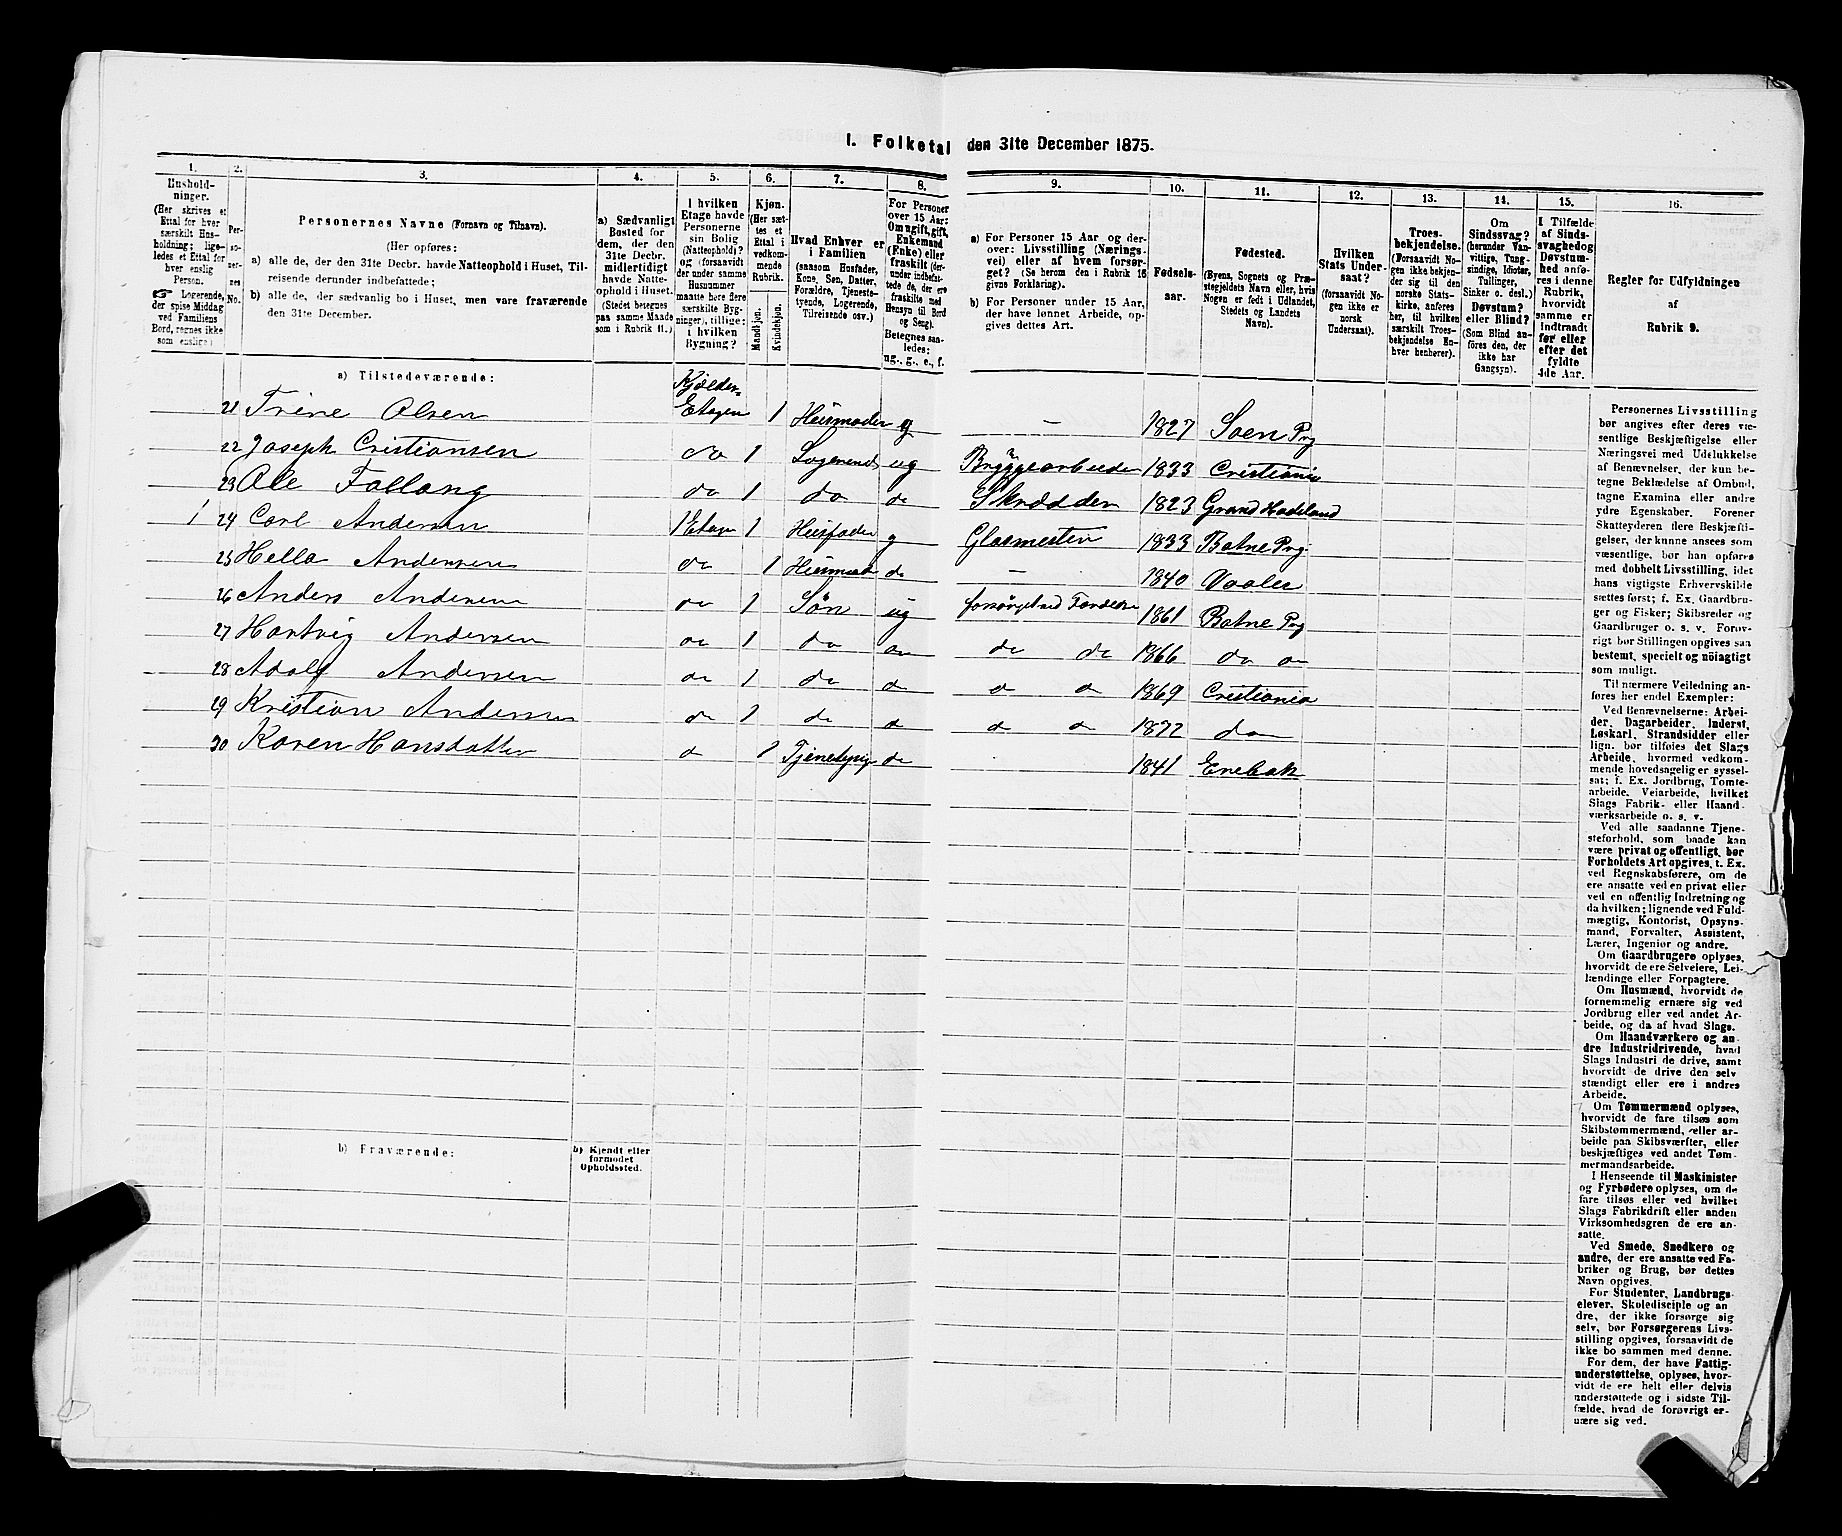 I. Folketal den 31te December 1875.
1. 2. 3. 4. 5. 6. 7. 8. 9. 10. 11. 12. 13. 14. 15. 16.
Hushold-
ninger.
(Her skrives et
Ettal for hver
særskilt Hus-
holdning; lige-
ledes et Ettal for
hver enslig
Person.
☞ Logerende,
der spise Middag
ved Familiens
Bord, regnes ikke
som enslige.)
Per-
so-
ner-
nes
No.
Personernes Navne (Fornavn og Tilnavn).
(Her opføres:
a) alle de, der den 31te Decbr. havde Natteophold i Huset, Til-
reisende derunder indbefattede;
b) alle de, der sædvanlig bo i Huset, men vare fraværende
den 31te December.
a) Sædvanligt
Bosted for
dem, der den
31te Decbr.
midlertidigt
havde Natte-
ophold i Huset.
(Stedet betegnes
paa samme Maade
som i Rubrik 11.)
I hvilken
Etage havde
Personerne
sin Bolig
(Natteophold)?
og (forsaavidt
der under samme
Husnummer
maatte høre flere
særskilte Byg-
ninger), tillige:
i hvilken
Bygning?
Kjøn.
(Her sæt-
tes et
Ettal i
vedkom-
mende
Rubrik.
Mandkjøn.
Kvindekjøn.
Hvad Enhver er
i Familien
(saasom Husfader,
Kone, Søn, Datter,
Forældre, Tjeneste-
tyende, Logerende,
Tilreisende osv.)
For Personer
over 15 Aar:
Om ugift, gift,
Enkemand
(Enke) eller
fraskilt (der-
under indbefat-
tede de, der ere
fraskilte med
Hensyn til Bord
og Seng).
Betegnes saa-
ledes:
ug., g., e., f.
a) For Personer 15 Aar og der-
over: Livsstilling (Nærings-
vei) eller af hvem forsør-
get? (Se herom den i Rubrik 16
givne Forklaring).
b) For Personer under 15 Aar,
der have lønnet Arbeide, op-
gives dettes Art.
Fødsels-
aar.
Fødested.
(Byens, Sognets og Præ-
stegjeldets Navn eller, hvis
Nogen er født i Udlandet,
Stedets og Landets
Navn).
Hvilken
Stats Under-
saat?
(forsaavidt No-
gen ikke er
norsk
Undersaat).
Troes-
bekjendelse.
(Forsaavidt No-
gen ikke bekjen-
der sig til den
norske Stats-
kirke, anføres
her, til hvilken
særskilt Troes-
bekjendelse En-
hver henhører).
Om
Sindssvag?
(herunder Van-
vittige, Tung-
sindige, Idioter,
Tullinger,
Sinker o. desl.)
Døvstum?
eller Blind?
(Som Blind an-
føres den, der
ikke har
Gangsyn).
I Tilfælde
af Sinds-
svaghed og
Døvstum-
hed anfø-
res i denne
Rubrik,
hvorvidt
samme er
indtraadt
før eller
efter det
fyldte
4de Aar.
Regler for Udfyldningen
af
Rubrik 9.
a) Tilstedeværende:
21 Trine Olsen Kjelder-Etagen 1 Husmoder g — 1827 Soen Prg
22 Joseph Cristiansen do 1 Logerend ug Bryggearbeider 1833 Cristiania
23 Ole Follang do 1 do do Skrædder 1823 Grand Hadeland
1 24 Carl Andersen 1 Etage 1 Husfader g Glasmester 1833 Botne Prg
25 Hella Andersen do 1 Husmod do — 1840 Vaaler
26 Anders Andersen do 1 Søn ug forsørget ved Forældre 1861 Botne Prg
27 Hartvig Andersen do 1 do do do do 1866 do do
28 Adolf Andersen do 1 do do do do 1869 Cristiania
29 Kristian Andersen do 1 do do do do 1872 do
30 Karen Hansdatter do 1 Tjenetepig do 1841 Enebak
b) Fraværende:
b) Kjendt eller
formodet
Opholdssted.
Personernes Livsstilling
bør angives efter deres væ-
sentlige Beskjæftigelse eller
Næringsvei med Udelukkelse
af Benævnelser, der kun be-
tegne Beklædelse af Ombud,
tagne Examina eller andre
ydre Egenskaber. Forener
Skatteyderen flere Beskjæfti-
gelser, der kunne ansees som
væsentlige, bør han opføres
med dobbelt Livsstilling, idet
hans vigtigste Erhvervskilde
sættes først; f. Ex. Gaardbru-
ger og Fisker; Skibsreder og
Gaardbruger o. s. v. Forøv-
rigt bør Stillingen opgives saa
bestemt, specielt og nøiagtigt
som muligt.
Til nærmere Veiledning an-
føres her endel Exempler:
Ved Benævnelserne: Arbei-
der, Dagarbeider, Inderst,
Løskarl, Strandsidder eller
lign. bør tilføies det Slags
Arbeide, hvormed vedkom-
mende hovedsagelig er syssel-
sat; f. Ex. Jordbrug, Tomte-
arbeide, Veiarbeide, hvilket
Slags Fabrik- eller Haand-
værksarbeide o. s. v.
Ved alle saadanne Tjene-
steforhold, som baade kan
være privat og offentligt, bør
Forholdets Art opgives, t. Ex.
ved Regnskabsførere, om de
ere ansatte ved en privat eller
ved en offentlig Indretning og
da hvilken; lignende ved Fuld-
mægtig, Kontorist, Opsyns-
mand, Forvalter, Assistent,
Lærer, Ingeniør og andre.
Om Gaardbrugere oplyses,
hvorvidt de ere Selveiere, Lei-
lændinge eller Forpagtere.
Om Husmænd, hvorvidt de
fornemmelig ernære sig ved
Jordbrug eller ved andet Ar-
beide, og da af hvad Slags.
Om Haandværkere og an-
dre Industridrivende, hvad
Slags Industri de drive, samt
hvorvidt de drive den selv-
stændigt eller ere i andres
Arbeide.
Om Tømmermænd oplyses,
hvorvidt de fare tilsøs som
Skibstømmermænd, eller ar-
beide paa Skibsværfter, eller
beskjæftiges ved andet Tøm-
mermandsarbeide.
I Henseende til Maskinister
og Fyrbødere oplyses, om de
fare tilsøs eller ved hvilket
Slags Fabrikdrift eller anden
Virksomhedsgren de ere an-
satte.
Ved Smede, Snedkere og
andre, der ere ansatte ved Fa-
briker og Brug, bør dettes
Navn opgives.
For Studenter, Landbrugs-
elever, Skoledisciple og an-
dre, der ikke forsørge sig
selv, bør Forsørgerens Livs-
stilling opgives, forsaavidt de
ikke bo sammen med denne.
For dem, der have Fattig-
understøttelse, oplyses, hvor-
vidt de ere helt eller delvis
understøttede og i sidste Til-
fælde, hvad de forøvrigt er-
nære sig ved.